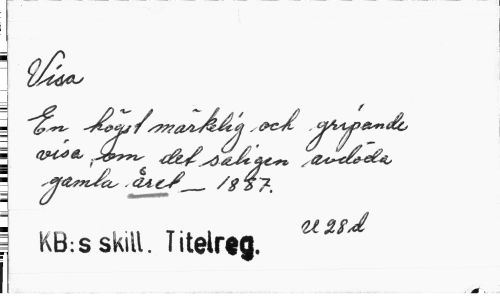 Visa
En högst märkelig och gripande
visa, om det saligen avdöda
gamla året – 1887.
U 28 d
KB:s skill. Titelreg.